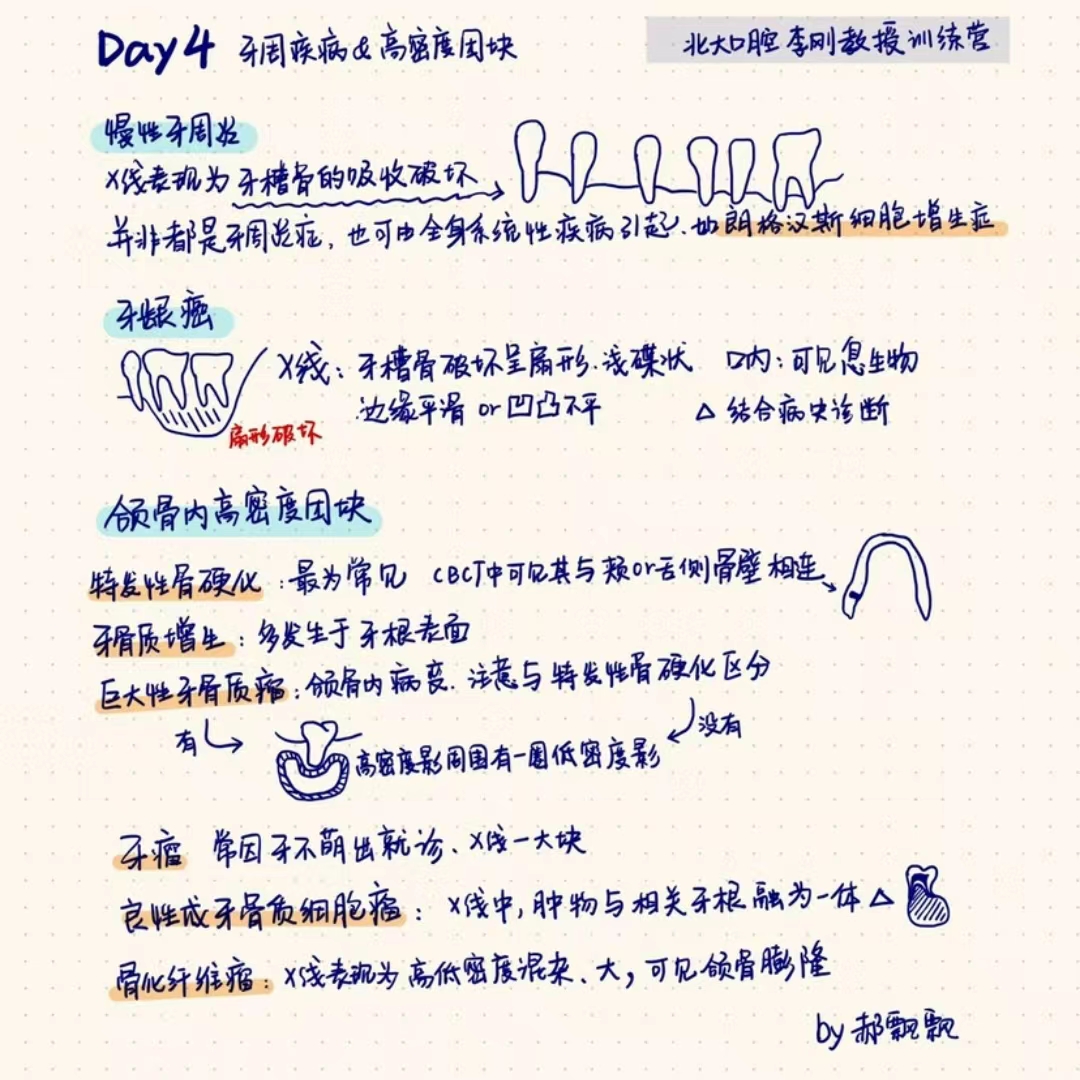 Day 4 牙周疾病&高密度团块
北大口腔李刚教授训练营
慢性牙周炎
X线表现为牙槽骨的吸收破坏
并非都是牙周炎症，也可由全身系统性疾病引起、如朗格汉斯细胞增生症
牙龈癌
X线：牙槽骨破坏呈扇形、浅碟状 口内：可见息生物
边缘平滑 or 凹凸不平 △ 结合病史诊断
扇形破坏
颌骨内高密度团块
特发性骨硬化：最为常见 CBCT中可见其与颊or舌侧骨壁相连
牙骨质增生：多发生于牙根表面
巨大性牙骨质瘤：颌骨内病变、注意与特发性骨硬化区分
有 没有
高密度影周围有一圈低密度影
牙瘤 常因牙不萌出就诊、X线一大块
良性成牙骨质细胞瘤：X线中，肿物与相关牙根融为一体 △
骨化纤维瘤：X线表现为高低密度混杂、大，可见颌骨膨隆
by 郝飘飘